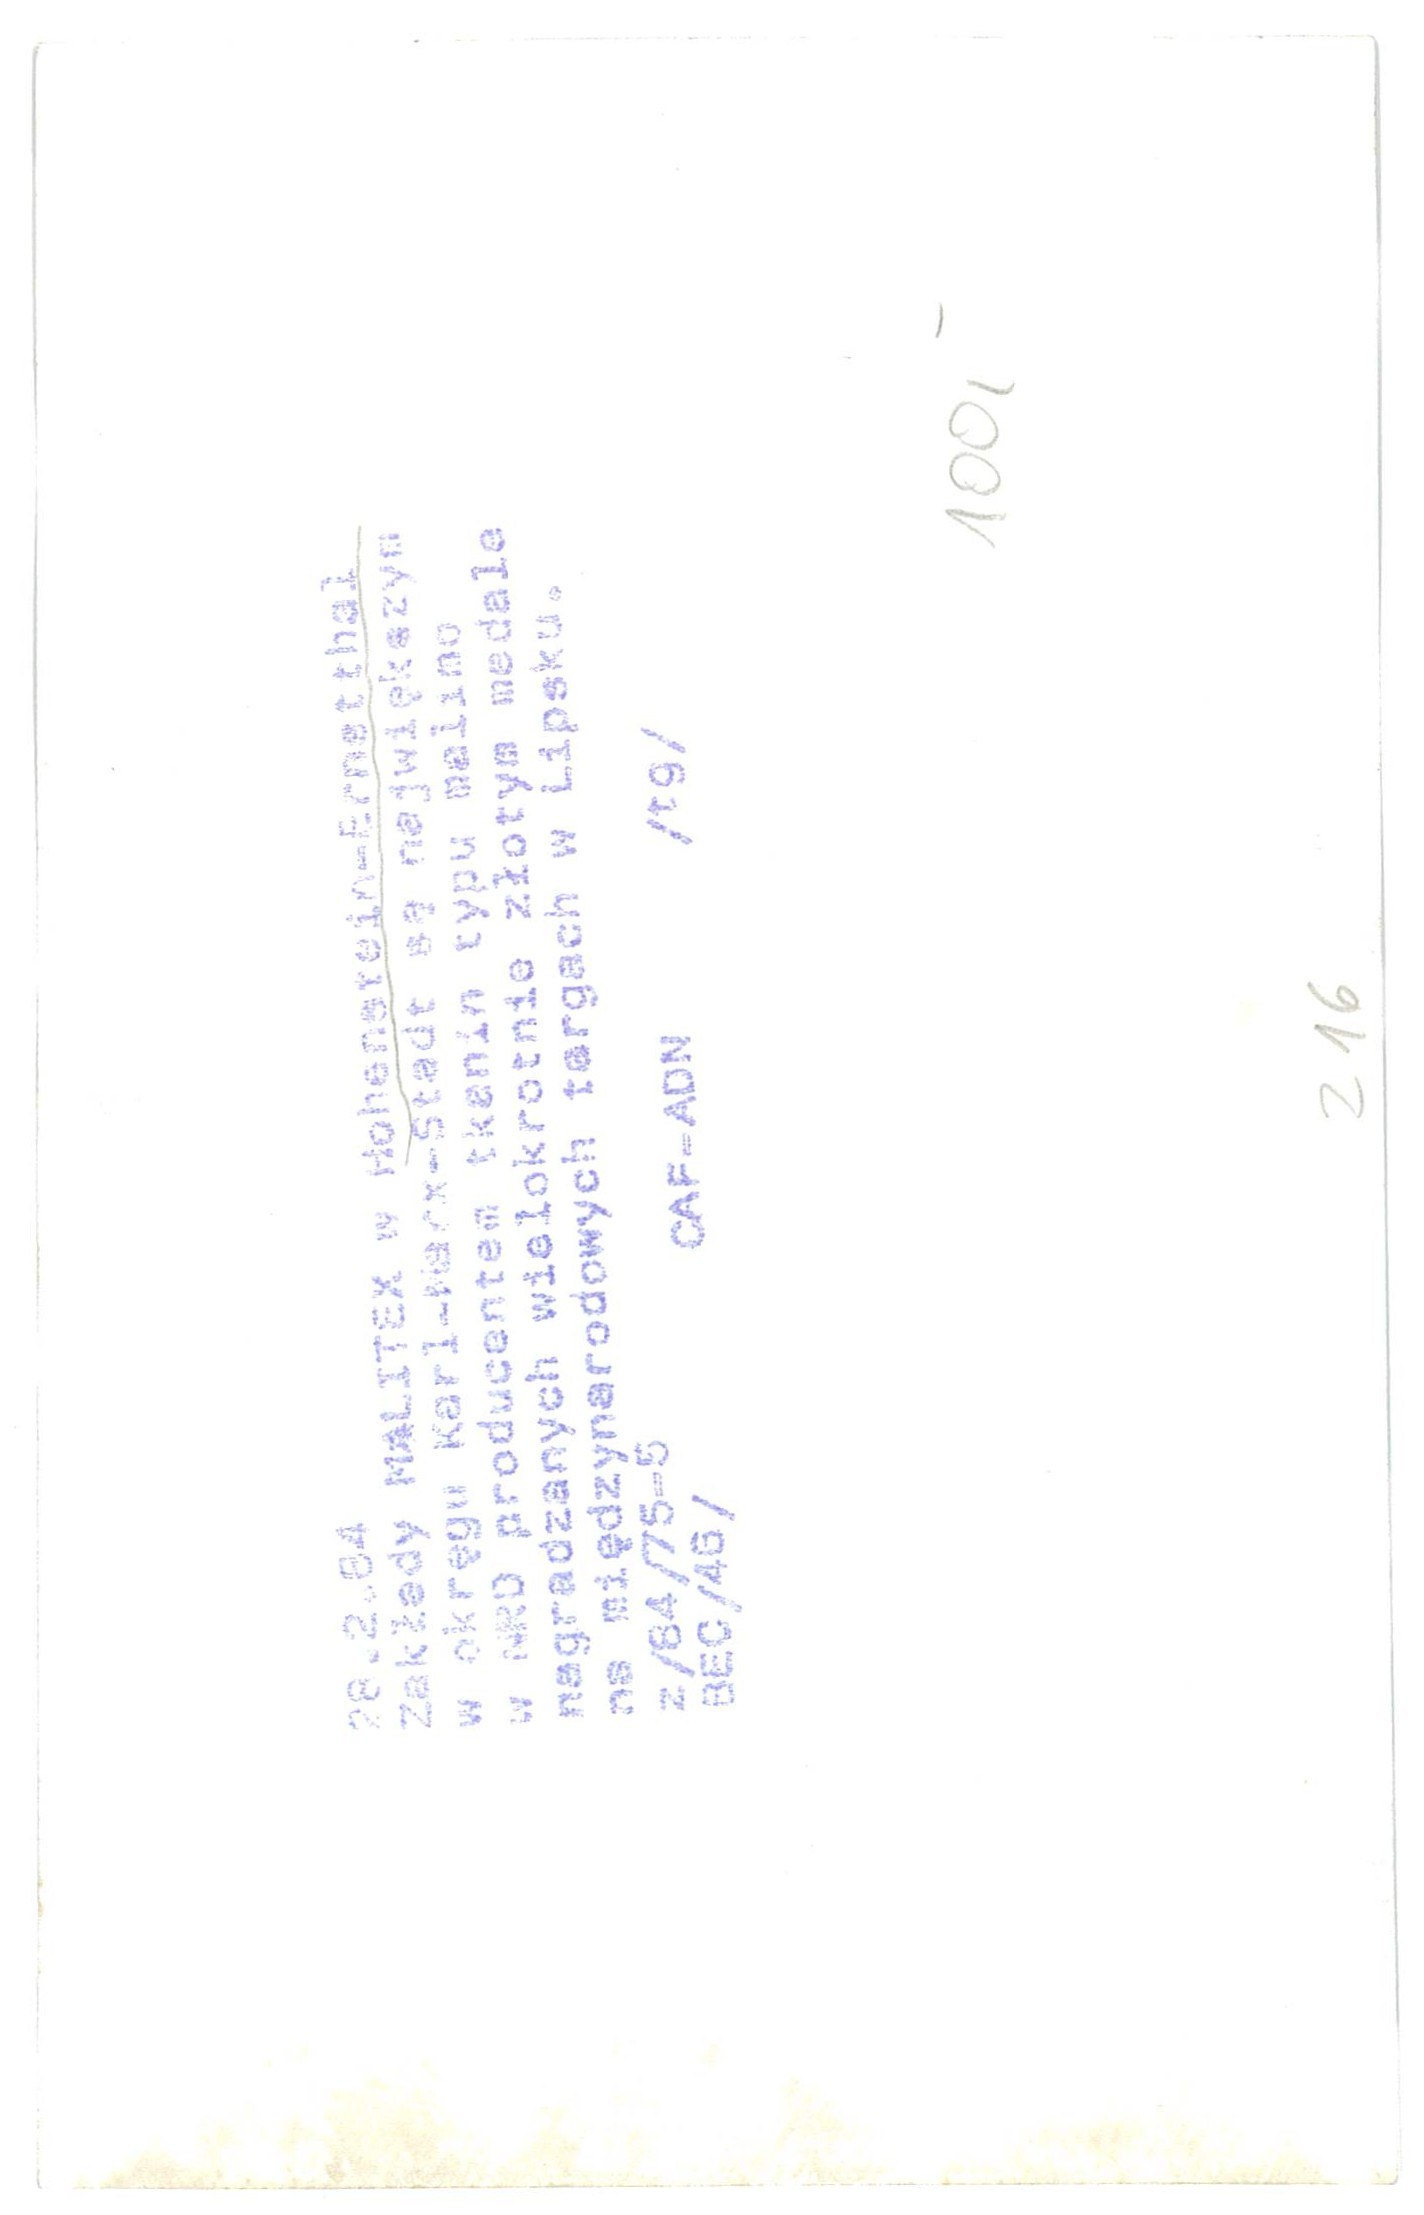 28.2.84
Zakłady MALITEX w Hohenstein-Ernstthal
w okręgu Karl-Marx-Stadt są największym
w NRD producentem tkanin typu malimo
nagradzanych wielokrotnie złotym medale
na międzynarodowych targach w Lipsku.
z/84/75-5 CAF-ADN /tg/
BEC/46/
100
216